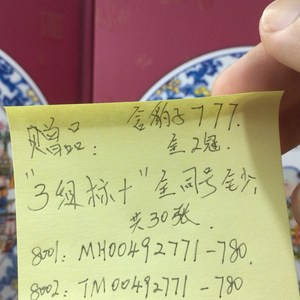 含豹子777.
赠品: 全2冠.
"3组标十"全同号
共30张.
8001: MH00492771-780
8002: TM00492771-780